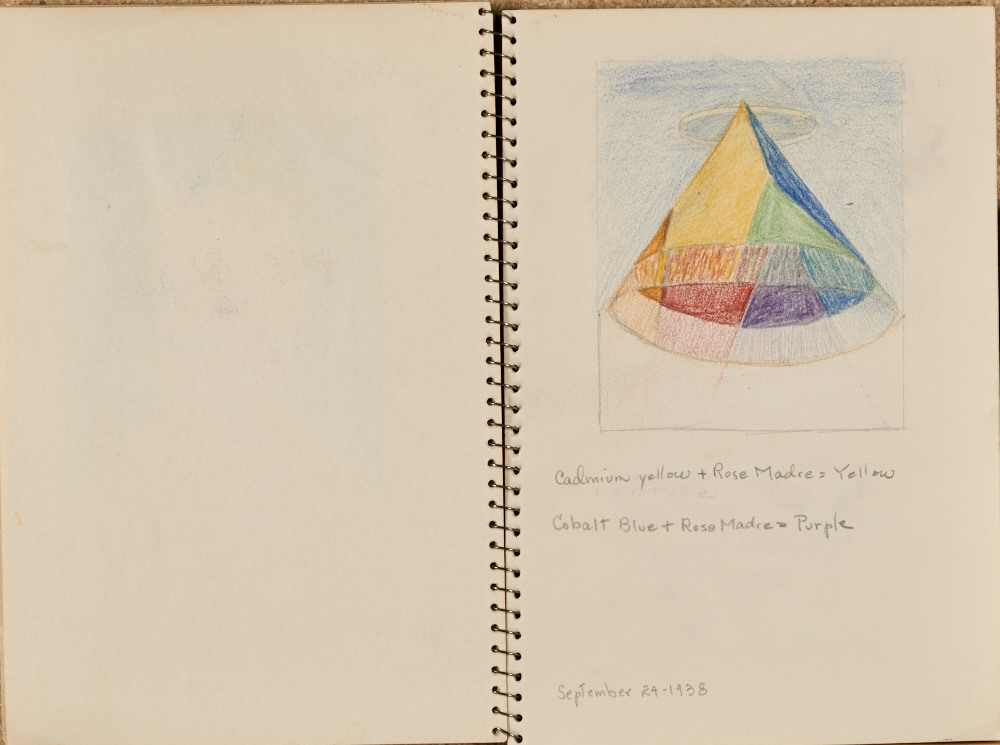 Cadmium yellow + Rose Madre = Yellow
Cobalt Blue + Rose Madre = Purple
September 24-1938